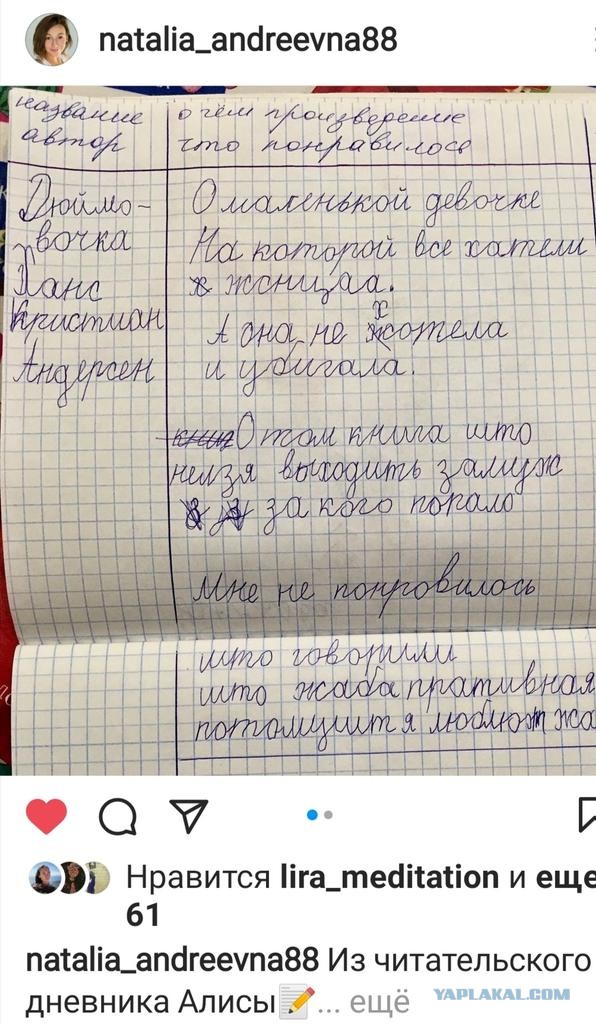 natalia_andreevna88
название
автор
о чём произведение
что понравилось
Дюймо-
вочка
Ханс
Кристиан
Андерсен
О маленькой девочке
На которой все хатели
женицаа.
А она не хотела
и убигала.
О том книга што
нелзя выходить замуж
за кого попало
Мне не понровилось
што говорили
што жаба пративная
потомушт я люблю жа
Нравится lira_meditation и еще
61
natalia_andreevna88 Из читательского
дневника Алисы📝... ещё
YAPLAKAL.COM